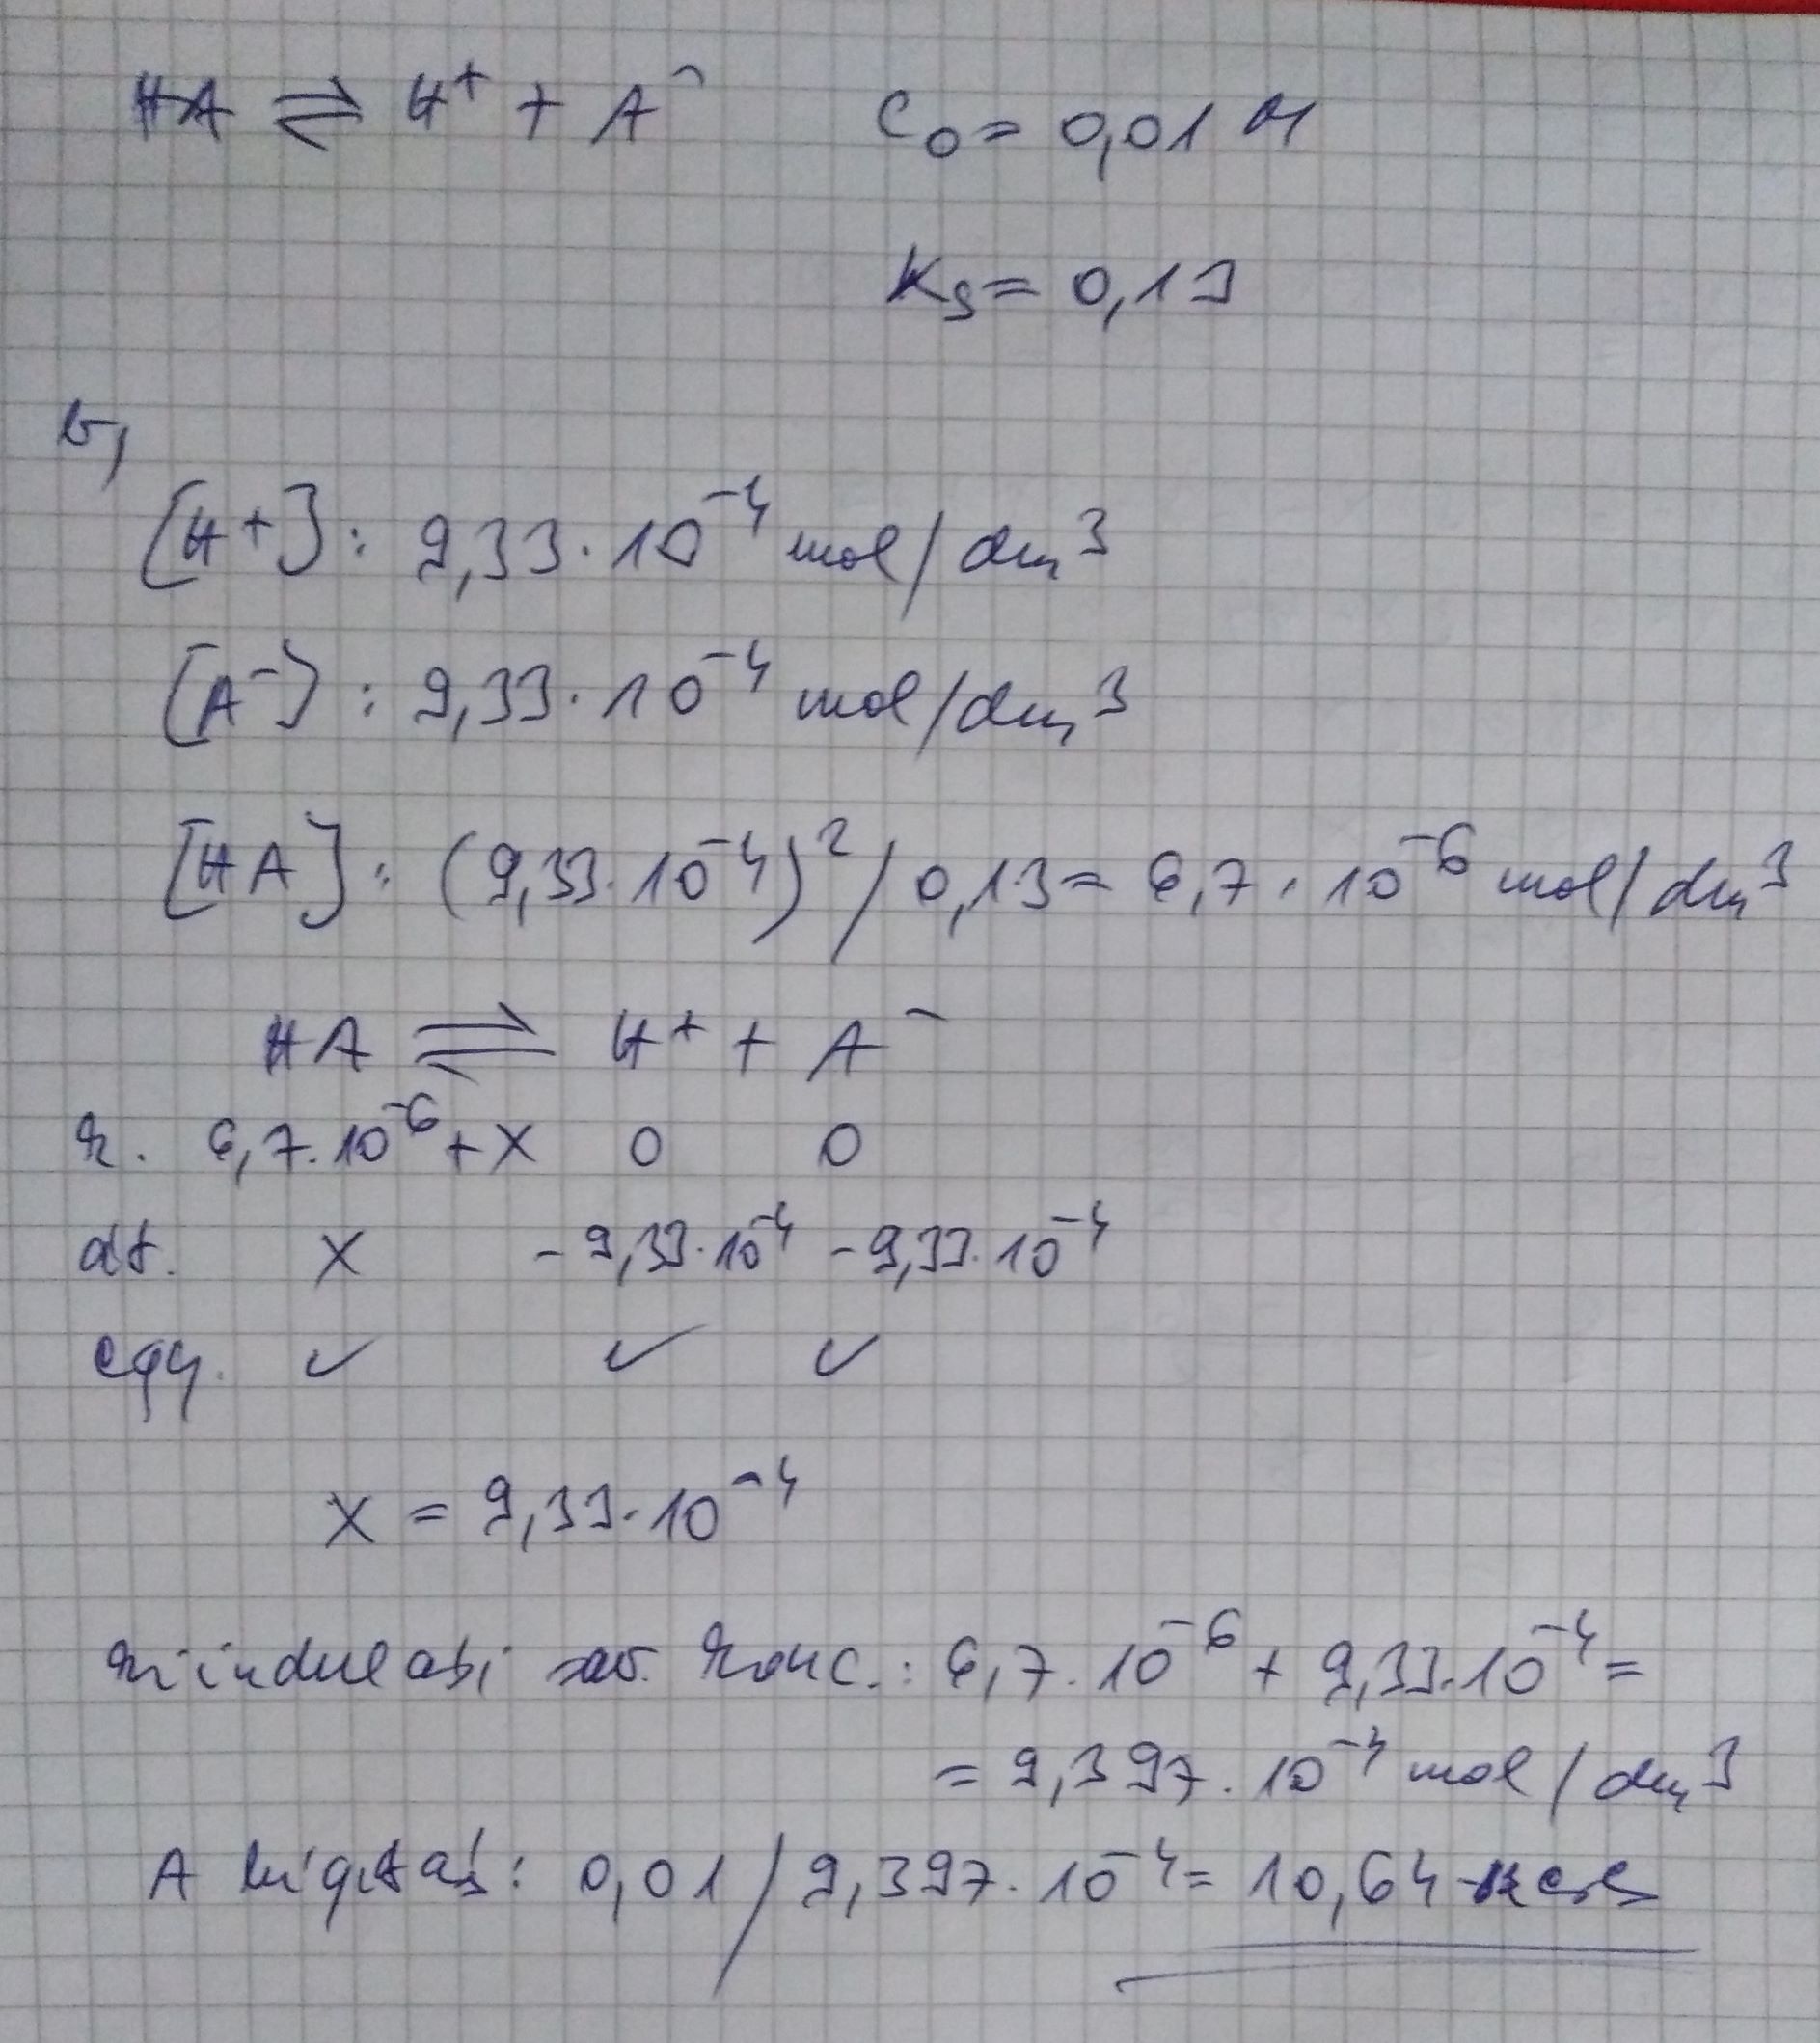 HA ⇌ H⁺ + A⁻ C₀ = 0,01 M
Kₛ = 0,13
b,
[H⁺]: 9,33·10⁻⁴ mol/dm³
[A⁻]: 9,33·10⁻⁴ mol/dm³
[HA]: (9,33·10⁻⁴)²/0,13 = 6,7·10⁻⁶ mol/dm³
HA ⇌ H⁺ + A⁻
k. 6,7·10⁻⁶+x 0 0
át. x -9,33·10⁻⁴ -9,33·10⁻⁴
egy. ✓ ✓ ✓
x = 9,33·10⁻⁴
kiindulási sav konc.: 6,7·10⁻⁶ + 9,33·10⁻⁴ =
= 9,397·10⁻⁴ mol/dm³
A hígítás: 0,01/9,397·10⁻⁴ = 10,64-szeres